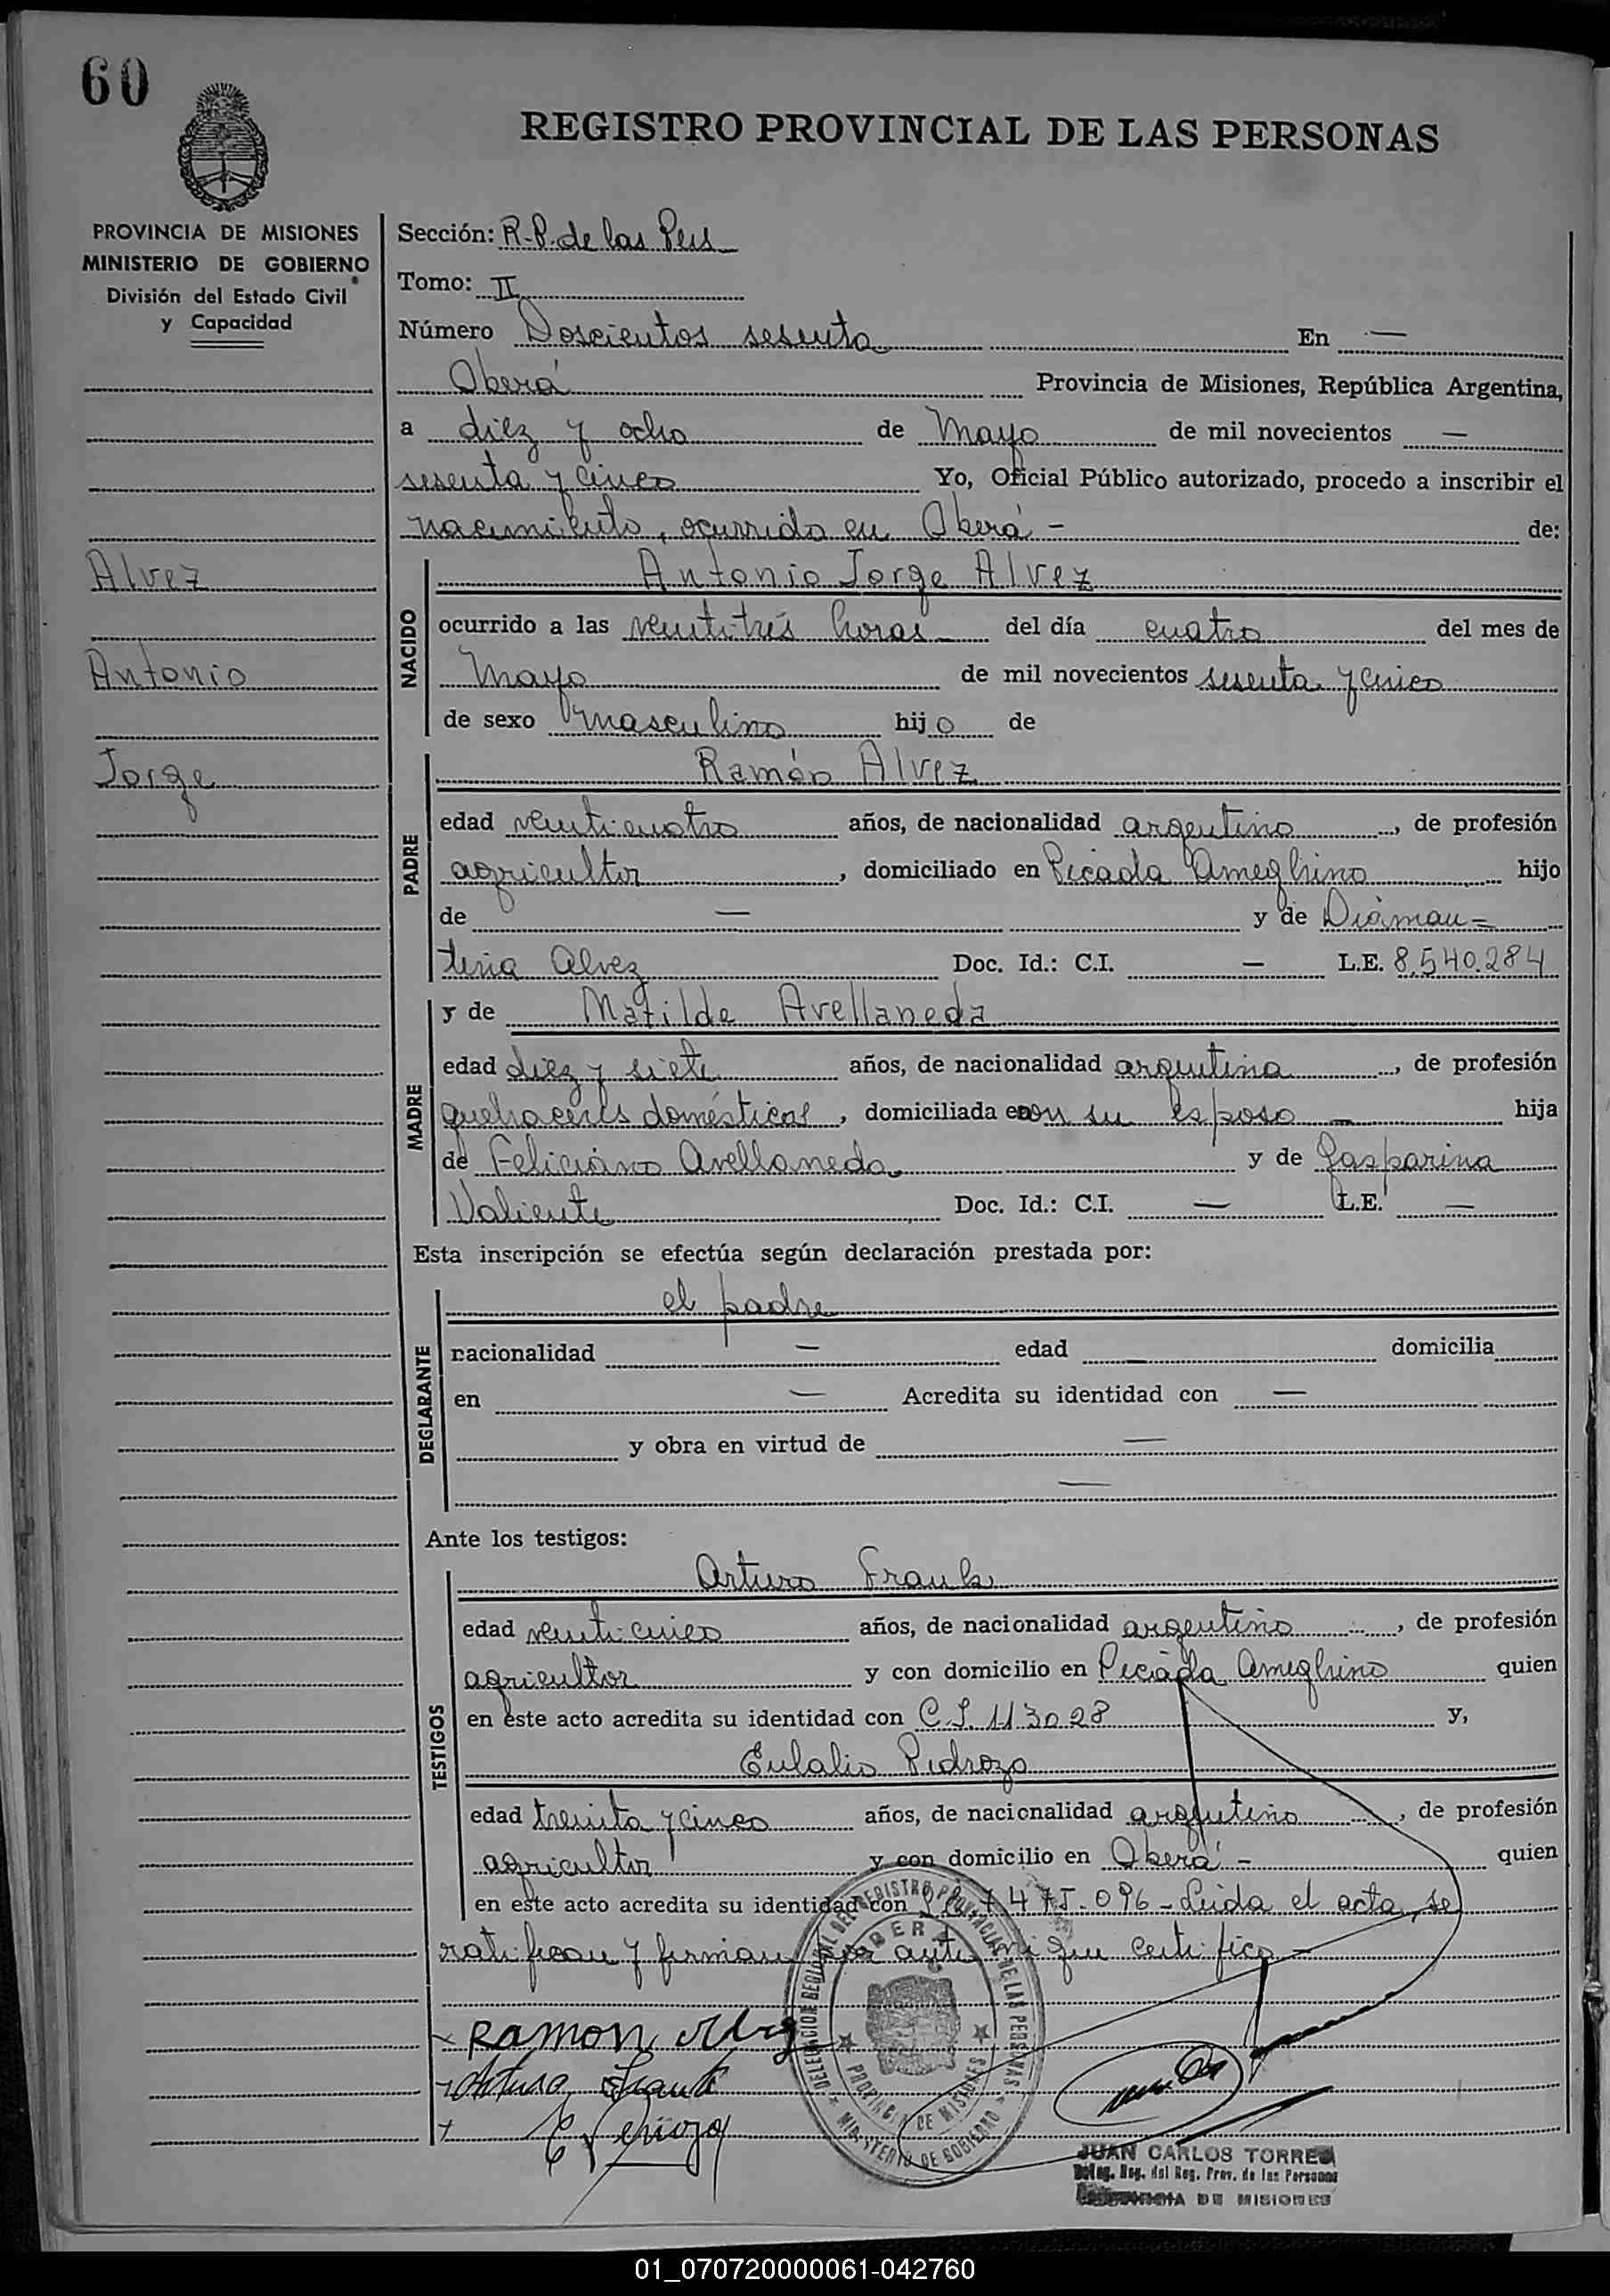 60
REGISTRO PROVINCIAL DE LAS PERSONAS
PROVINCIA DE MISIONES
MINISTERIO DE GOBIERNO
División del Estado Civil
y Capacidad
Alvez
Antonio
Jorge
Sección: R.P. de las Pers
Tomo: II
Número Doscientos sesenta En —
Oberá Provincia de Misiones, República Argentina,
a diez y ocho de Mayo de mil novecientos —
sesenta y cinco Yo, Oficial Público autorizado, procedo a inscribir el
nacimiento, ocurrido en Oberá - de:
NACIDO
Antonio Jorge Alvez
ocurrido a las veintitrés horas — del día cuatro del mes de
Mayo de mil novecientos sesenta y cinco
de sexo masculino hijo de
PADRE
Ramón Alvez
edad veinticuatro años, de nacionalidad argentino, de profesión
agricultor, domiciliado en Picada Ameghino hijo
de — y de Diáman=
tina Alvez Doc. Id.: C.I. — L.E. 8.540.284
MADRE
y de Matilde Avellaneda
edad diez y siete años, de nacionalidad argentina, de profesión
quehaceres domésticos, domiciliada con su esposo — hija
de Feliciano Avellaneda y de Gasparina
Valiente Doc. Id.: C.I. — L.E. —
Esta inscripción se efectúa según declaración prestada por:
DECLARANTE
el padre
nacionalidad — edad — domicilia
en — Acredita su identidad con —
y obra en virtud de —
—
Ante los testigos:
TESTIGOS
Arturo Frank
edad veinticinco años, de nacionalidad argentino, de profesión
agricultor y con domicilio en Picada Ameghino quien
en este acto acredita su identidad con C.I. 113028 y,
Eulalio Pedrozo
edad treinta y cinco años, de nacionalidad argentino, de profesión
agricultor y con domicilio en Oberá - quien
en este acto acredita su identidad con 7475.096 - Leída el acta, se
ratifican y firman por ante mi que certifico —
Ramon Alvez
Arturo Frank
DELEGACION REGIONAL DEL REGISTRO PROVINCIAL DE LAS PERSONAS
OBERA
PROVINCIA DE MISIONES
MINISTERIO DE GOBIERNO
JUAN CARLOS TORRES
Deleg. Reg. del Reg. Prov. de las Personas
PROVINCIA DE MISIONES
01_070720000061-042760